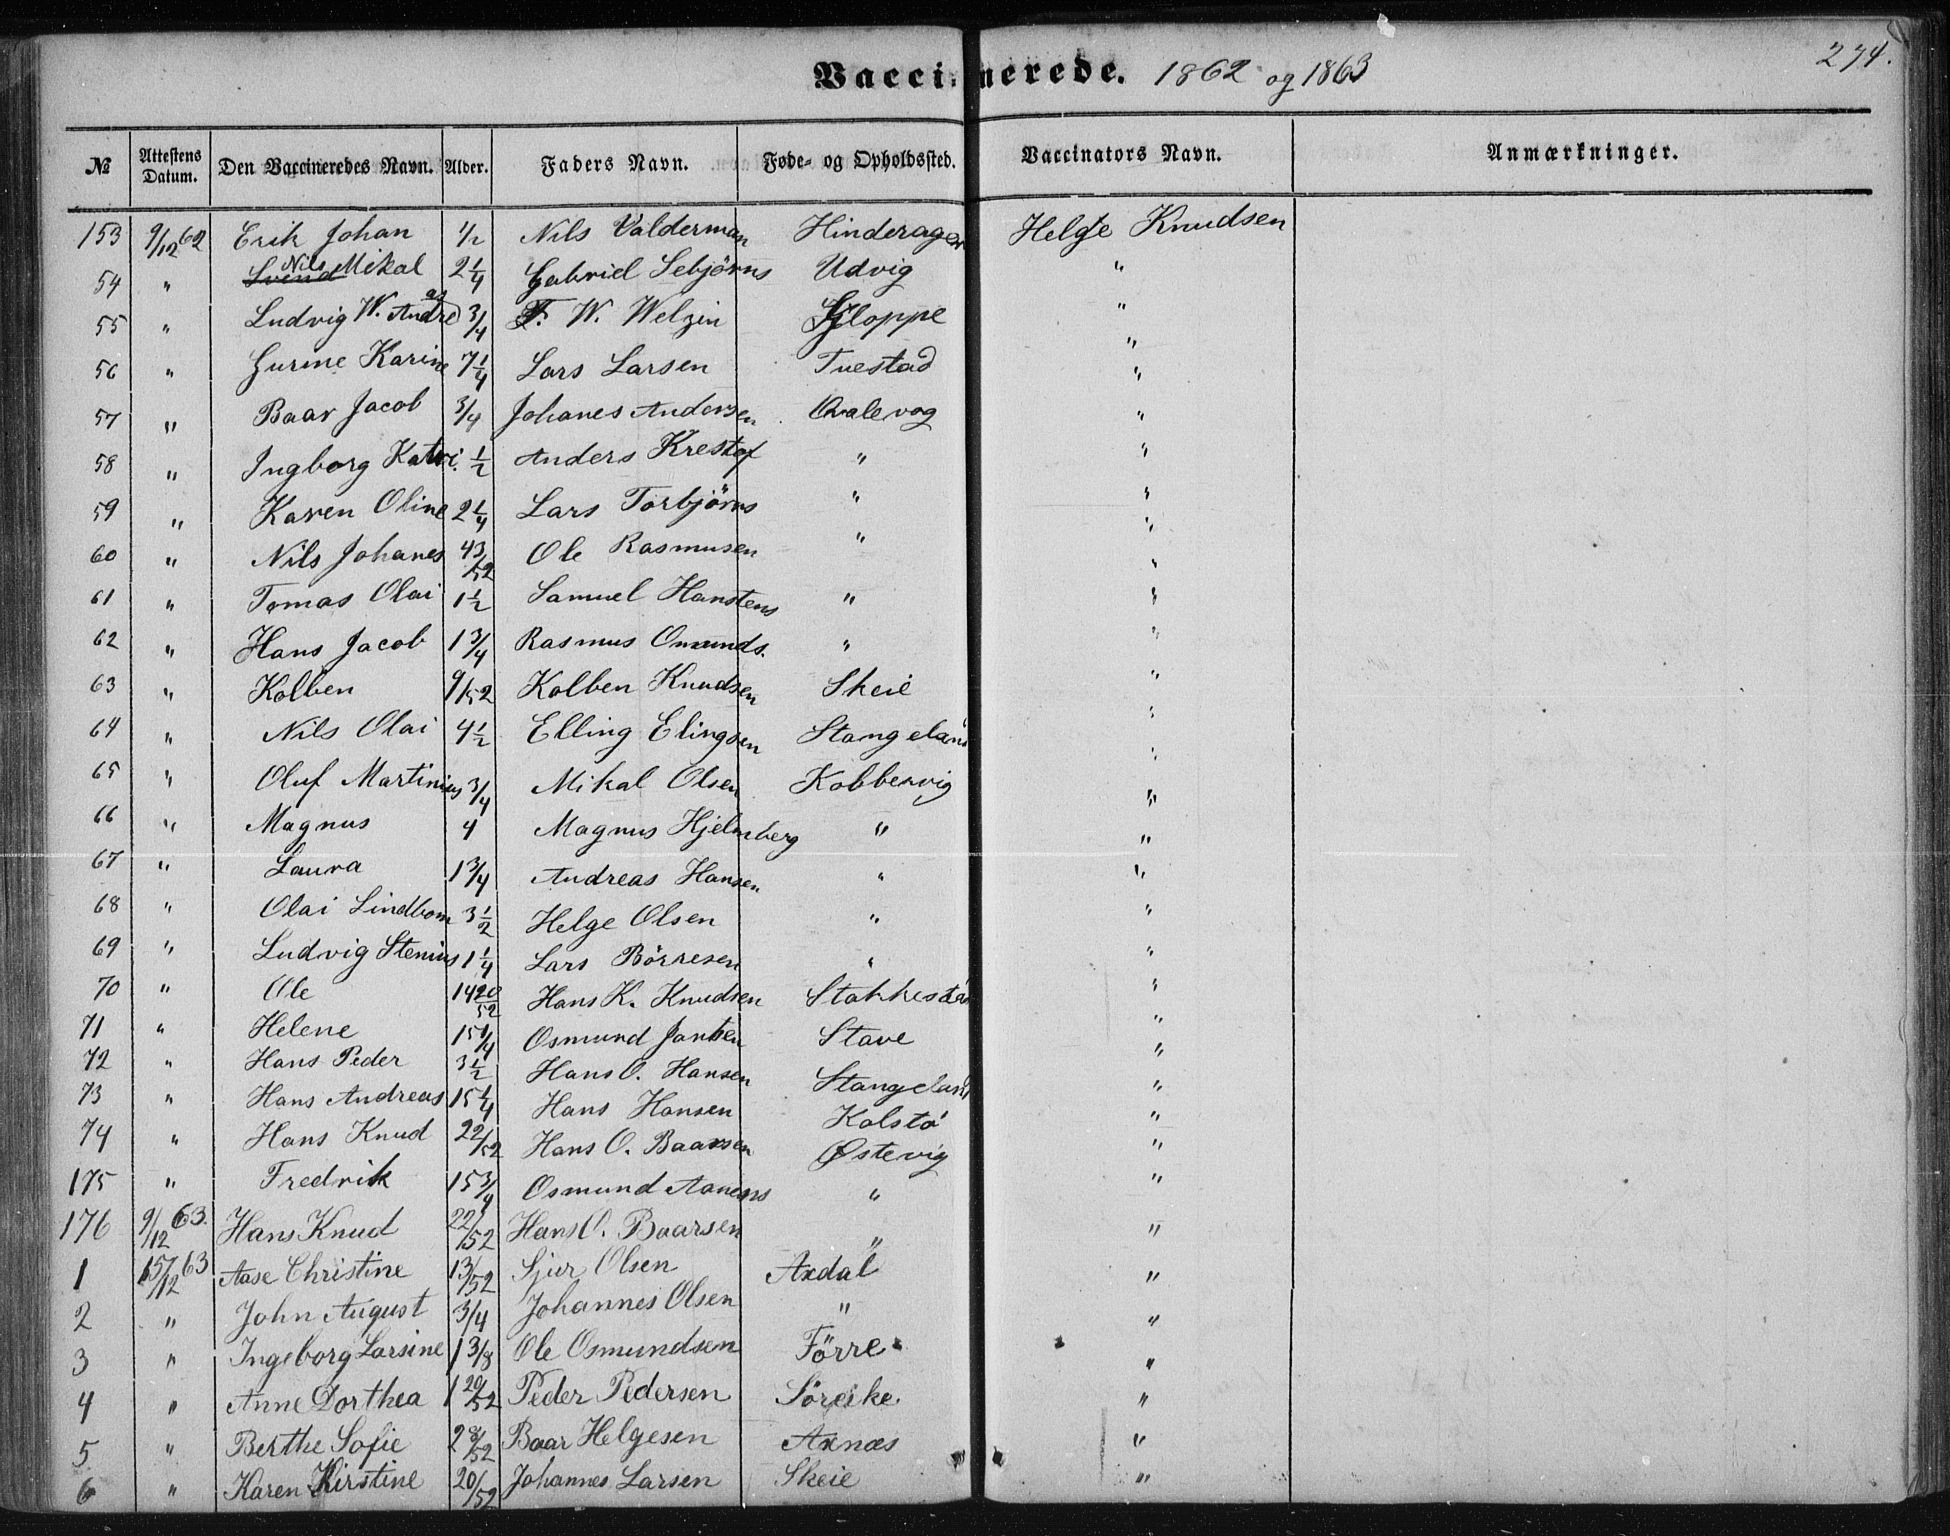 Vaccinerede. 1862 og 1863
274.
№ | Attestens Datum. | Den Vaccineredes Navn. | Alder. | Faders Navn. | Føde- og Opholdssted. | Vaccinators Navn. | Anmærkninger.
153 9/12 62 Erik Johan 1/2 Nils Valderman Hinderager Helge Knudsen
54 " Svend Nils Mikal 2 1/4 Gabriel Sebjörns Udvig "
55 " Ludvig W. Andreas 3/4 F. W. Welzin "
56 " Gurine Karine 7 1/4 Lars Larsen Tuestad "
57 " Baar Jacob 3/4 Johanes Andersen Qvalevog "
58 " Ingborg Katri. 1/2 Anders Krestof " "
59 " Karen Oline 2 1/4 Lars Torbjörns " "
60 " Nils Johanes 43/52 Ole Rasmusen " "
61 " Tomas Olai 1 1/2 Samuel Hanstens " "
62 " Hans Jacob 1 3/4 Rasmus Omunds. " "
63 " Kolben 9/52 Kolben Knudsen Skeie "
64 " Nils Olai 4 1/2 Elling Elingsen Stangeland "
65 " Oluf Martinius 3/4 Mikal Olsen Kobbervig "
66 " Magnus 4 Magnus Hjelmberg " "
67 " Laura 1 3/4 Andreas Hansen " "
68 " Olai Lindbom 3 1/2 Helge Olsen " "
69 " Ludvig Stenius 1 1/4 Lars Börresen " "
70 " Ole 14 20/52 Hans K. Knudsen "
71 " Helene 15 1/4 Osmund Jansen Stave "
72 " Hans Peder 3 1/2 Hans O. Hansen Stangeland "
73 " Hans Andreas 15 1/4 Hans Hansen Kolstö "
74 " Hans Knud 22/52 Hans O. Baarsen Østevig "
175 " Fredrik 15 3/4 Osmund Aanens " "
176 9/12 63. Hans Knud 22/52 Hans O. Baarsen " "
1 15/12 63 Aase Christine 13/52 Sjur Olsen Axdal "
2 " John August 3/4 Johannes Olsen " "
3 " Ingeborg Larsine 1 3/8 Ole Osmundsen Förre "
4 " Anne Dorthea 1 20/52 Peder Pedersen Söreske "
5 " Berthe Sofie 2 8/52 Baar Helgesen Axnæs "
6 " Karen Kirstine 20/52 Johannes Larsen Skeie "